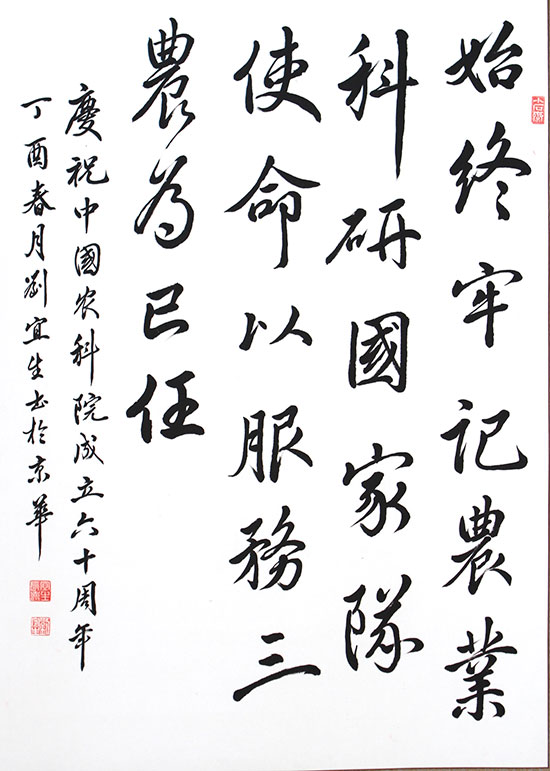 始终牢记農業
科研國家隊
使命以服務三
農为己任
慶祝中國农科院成立六十周年
丁酉春月劉宜生书於京華